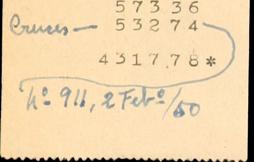 57336
Cruces — 53274
431778*
Nº 911, 2 Febº/50